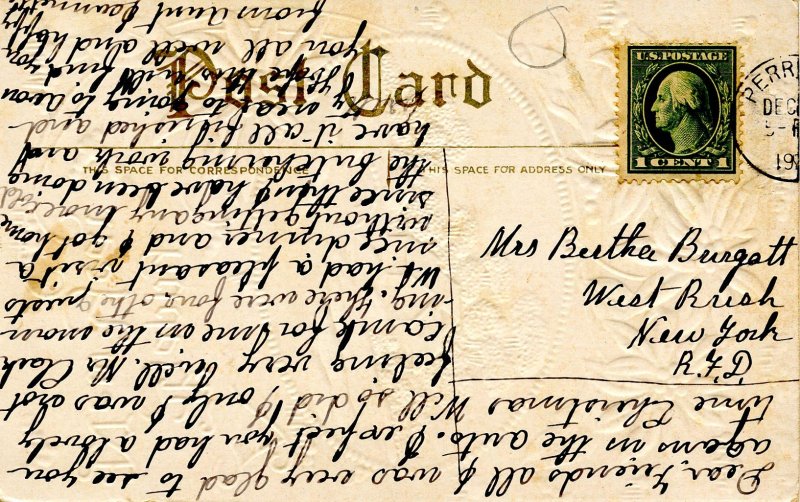 Post Card
THIS SPACE FOR CORRESPONDENCE
THIS SPACE FOR ADDRESS ONLY
U.S. POSTAGE
1 CENT 1
PERRI
DEC
19
Mrs Bertha Burgett
West Rush
New York
R.F.D
Dear Friends all I was very glad to see you
agans in the auto. I expect you had a lovely
time Christmas Well so did I only I was not
feeling very well. Mr Clark
came for me on the morn
ing. there were four other guests
We had a pleasant visit a
nice dinner and I got home
without getting any cold
since then have been doing
the butchering work and
have it all finished and
meat going to avon
I hope this will find you
you all well and happy
from aunt